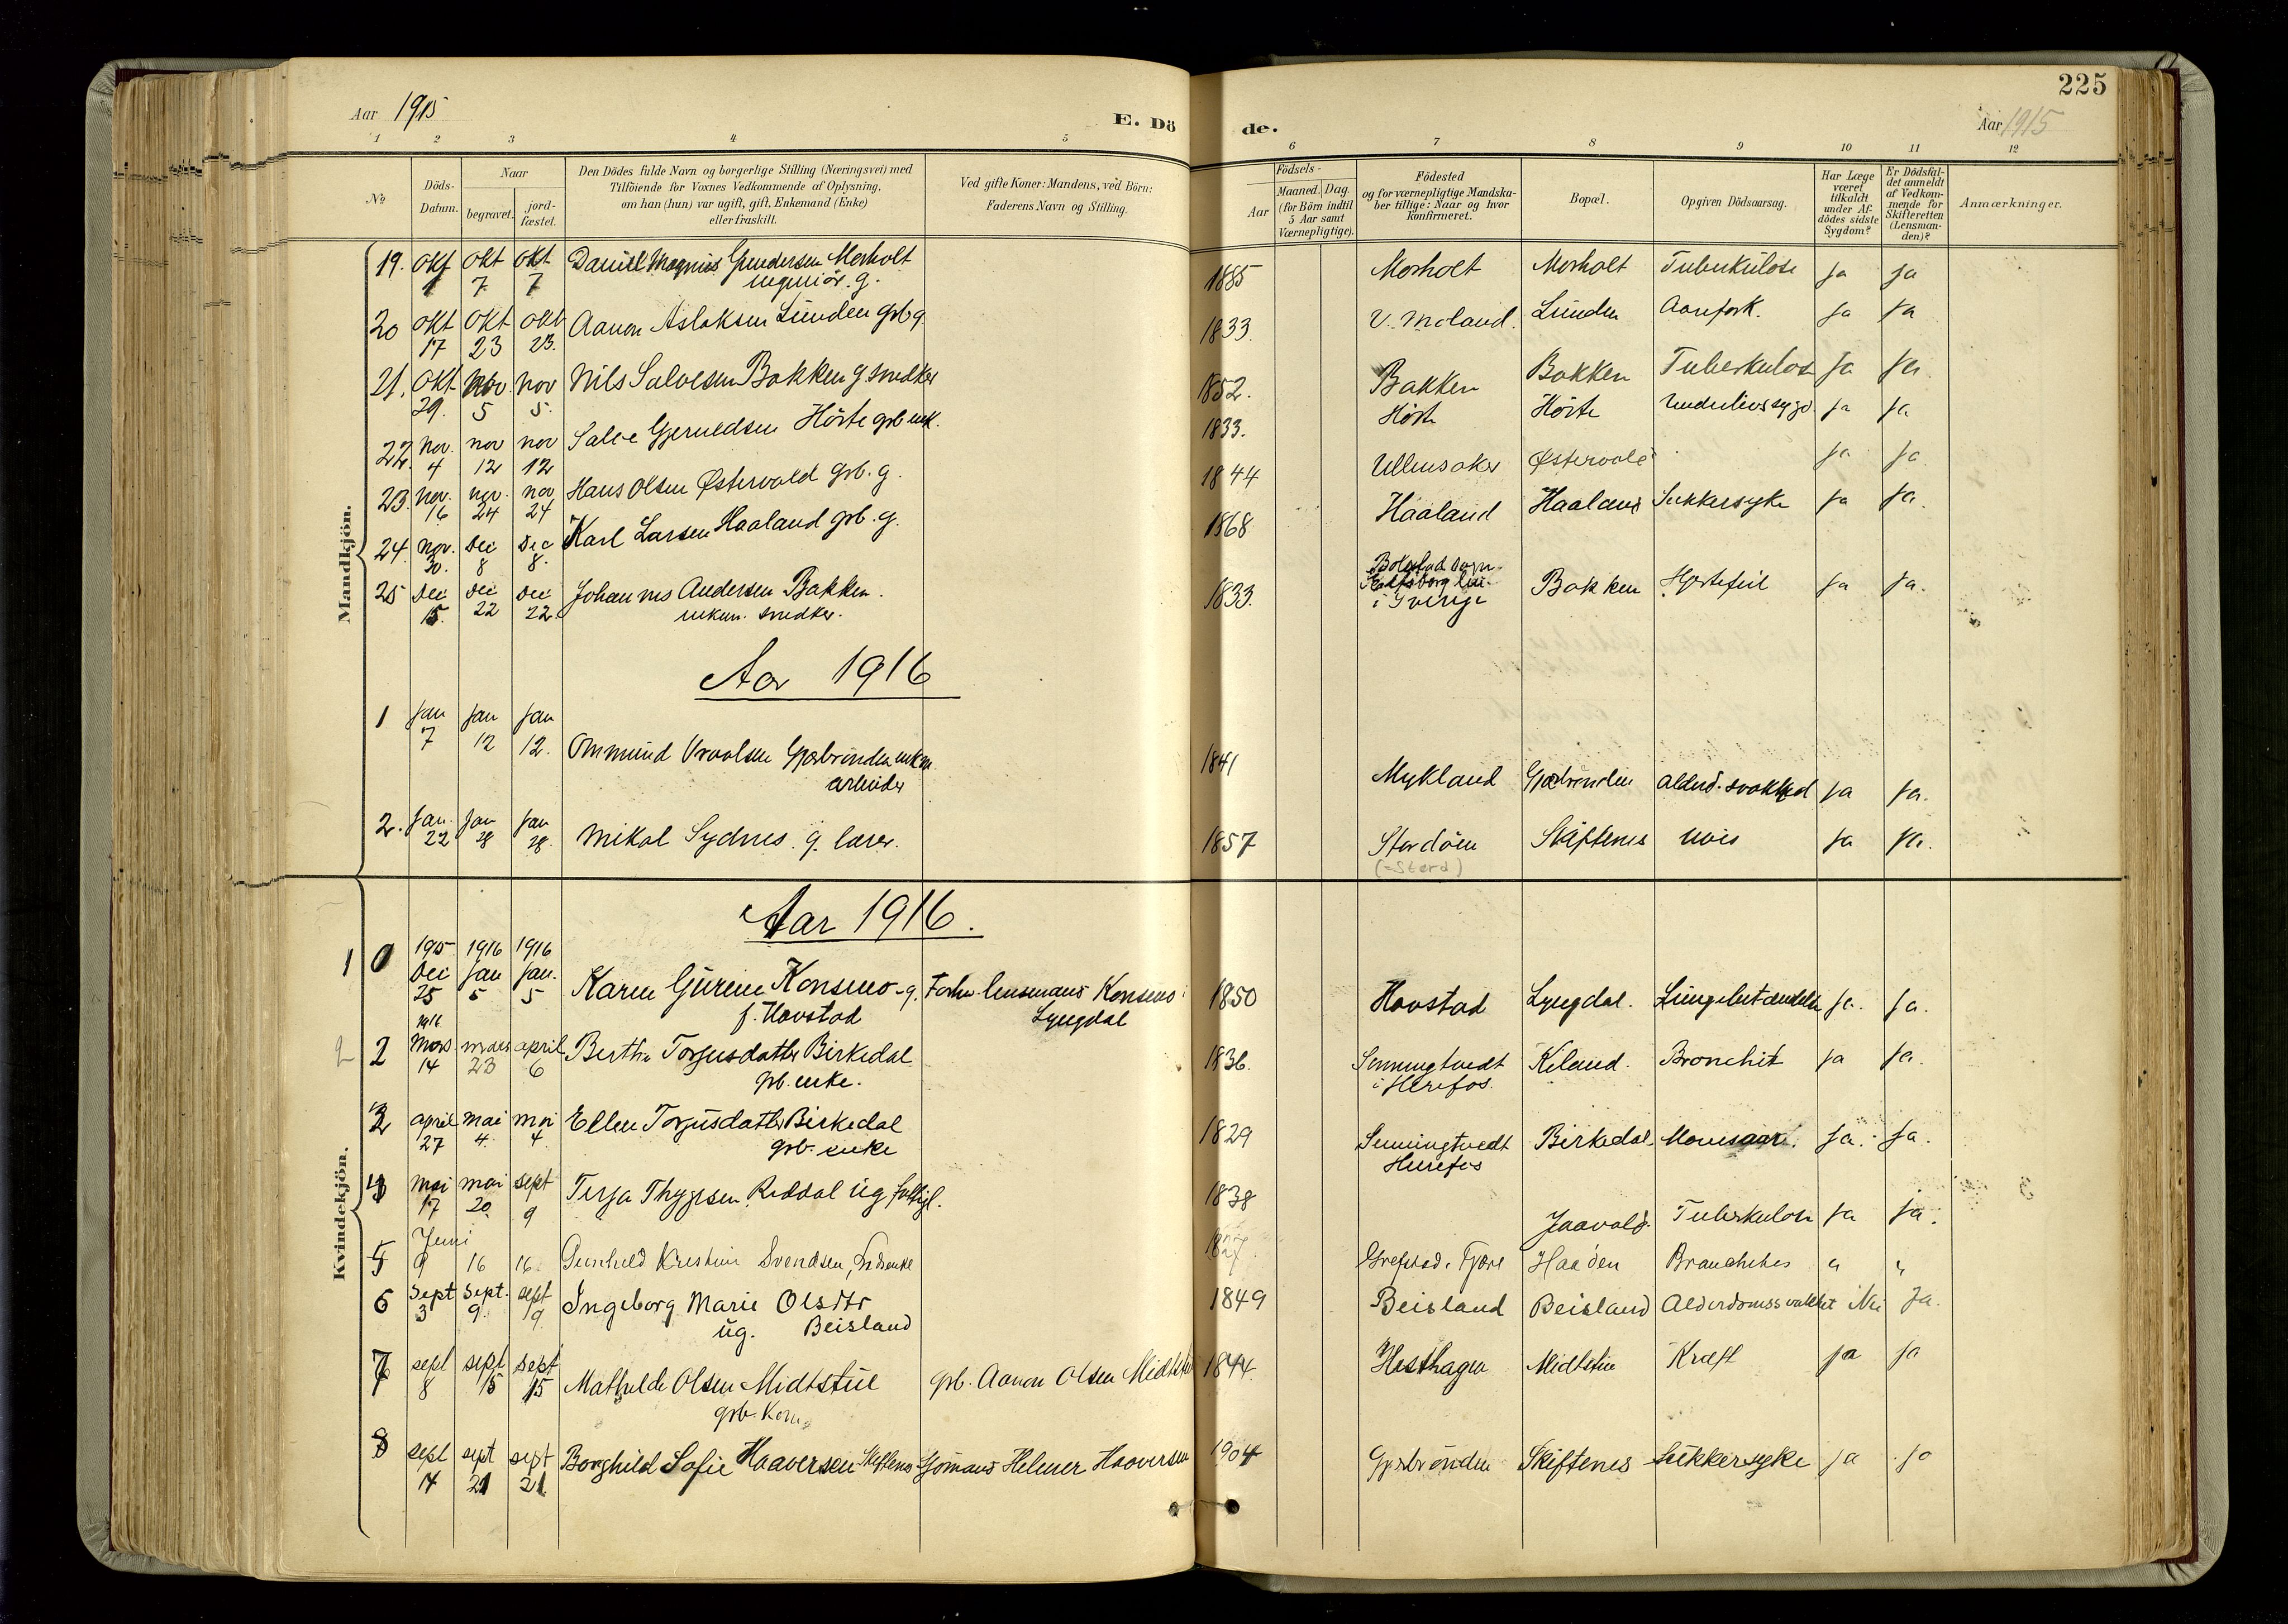 225
Aar 1915
E. Dö
de.
Aar 1915
1 2 3 4 5 6 7 8 9 10 11 12
№
Döds-
Datum.
Naar
begravet.
jord-
fæstet.
Den Dödes fulde Navn og borgerlige Stilling (Næringsvei) med
Tilföiende for Voxnes Vedkommende af Oplysning,
om han (hun) var ugift, gift, Enkemand (Enke)
eller fraskilt.
Ved gifte Koner: Mandens, ved Börn:
Faderens Navn og Stilling.
Födsels-
Aar
Maaned. Dag.
(for Börn indtil
5 Aar samt
Værnepligtige).
Födested
og for værnepligtige Mandska-
ber tillige: Naar og hvor
konfirmeret.
Bopæl.
Opgiven Dödsaarsag.
Har Læge
været
tilkaldt
under Af-
dödes sidste
Sygdom?
Er Dödsfal-
det anmeldt
af Vedkom-
mende for
Skifteretten
(Lensman-
den)?
Anmærkninger.
Mandkjön.
19. Okt Okt Okt Daniel Magnus Gundersen Morholt 1885 Morholt Morholt Tuberkulose ja ja
1 7 7 ingeniör. g.
20 Okt Okt Okt Aanon Aslaksen Lunden grb g 1833. V. Moland. Lunden Aarefork. ja ja
17 23 23.
21. Okt Nov nov Nils Salvesen Bakken g. snedker 1852. Bakken Bakken Tuberkulos ja ja
29. 5 5.
22. nov. nov nov Salve Gjeruldsen Hörte grb enk. 1833. Hörte Hörte Underlivssygd. ja ja.
4 12 12
23. nov. nov. nov Hans Olsen Østervold grb. g. 1844 Ullensaker Østervold ja ja
16 24 24
24. nov. Dec Dec Karl Larsen Haaland grb. g. 1868 Haaland Haaland Sukkersyke ja ja.
30. 8 8.
25 Dec Dec Dec Johannes Andersen Bakken. 1833. i Sverige Bakken Hjertefeil ja ja.
15. 22 22. enkem. snedker.
Aar 1916
1 Jan Jan Jan Ommund Vraalsen Gjærbrönden enkem. 1841 Mykland Gjærbrönden Alderd. svakhed ja ja.
7 12 12. arbeider
2. Jan. Jan Jan Mikal Sydnes. g. lærer. 1857 Stordöen Skiftenes ja ja.
22 28 28. (=Stord)
Kvindekjön.
Aar 1916.
1915 1916 1916
1 Dec Jan Jan. Karen Gurine Konsmo g. Forhv. lensmand Konsmo 1850 Hovstad Lyngdal. Lungebetændelse ja. ja.
25 5 5 f. Hovstad Lyngdal
1916
2 2 Mars. mars april Berthe Torjusdatter Birkedal 1836. Senningtvedt Kiland. Bronchit ja ja.
14 23 6 grb. enke. i Herefos.
3 april mai mai Ellen Torjusdatter Birkedal 1829 Senningtvedt Birkedal ja. ja.
27 4. 4 grb. enke Herefos
4 mai mai sept Terja Thygesen Reddal ug fattigl. 1838 Jaavold. Tuberkulose ja ja.
17 20. 9
Juni
5 9 16 16 Gunhild Kristine Svendsen, Grefstad. Fjære Haaden Bronchites " "
6 Sept Sept. sept Ingeborg Marie Olsdtr 1849 Beisland Beisland Alderdomssvakhet Nei Ja.
3 9. 9 ug. Beisland
7 sept sept sept Mathilde Olsen Midtstue grb. Aanon Olsen Midtstue 1844. Hesthagen Midtstue Kræft ja ja
8 15 15 grb. Kone
8 sept sept sept Borghild Sofie Haaversen Skiftenes Sjömand Helmer Haaversen 1904 Gjærbrönden Skiftenes Sukkersyke ja ja
14 21 21.